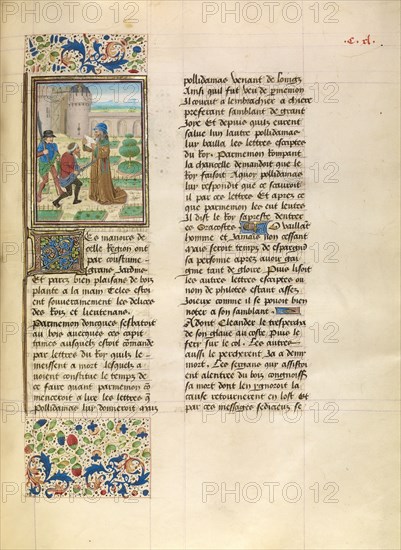 .C. xl.
Les manoirs de
celle Region ont
par coustume
grans Jardins
Et parcs bien plaisans de bois
plante a la main Telz estoi
ent souverainement les delices
des Rois et lieutenans.
Parmenion doncques sesbatoit
au bois avecques ces capit
taines ausquelz estoit comande
par lettres du Roy quilz le
meissent a mort lesquelz a
voient constitue le temps de
ce faire quant parmenion co
menceroit a lire les lettres q
Pollidamas luy donneroit
pollidamas venant de loingz
Ainsi quil fut veu de pmenion
Il courut a lembrachier a chiere
presentant samblant de grant
Joye Et depuis quilz eurent
salue lun lautre pollidamas
luy bailla les lettres escriptes
du Roy. Parmenion Rompant
la chancelle demandoit que le
Roy faisoit Aquoy pollidamas
luy respondit que ce scauroit
il par ces lettres Et apres ce
que parmenion les eut leutes
Il dist le Roy sapreste dentrer
es Oracostes Ovaillant
homme et Jamais non cessant
mais seroit temps despargnier
sa personne apres avoir gai
gnie tant de gloire Puis lisoit
les autres lettres escriptes ou
nom de philotes estant assez
Joieux comme il se pouoit bien
noter a son samblant.
Adont Cleander le tresperch
de son glaive au coste Puis le
fery sur le col. Les autres
aussi le percherent Ja a demy
mort. Les sergans qui assistoi
ent alentree du bois congnoiss
sa mort dont len ygnoroit la
cause retournerent en lost Et
par ces messages sedicieux se
PHOTO 12
PHOTO 12
PHOTO 12